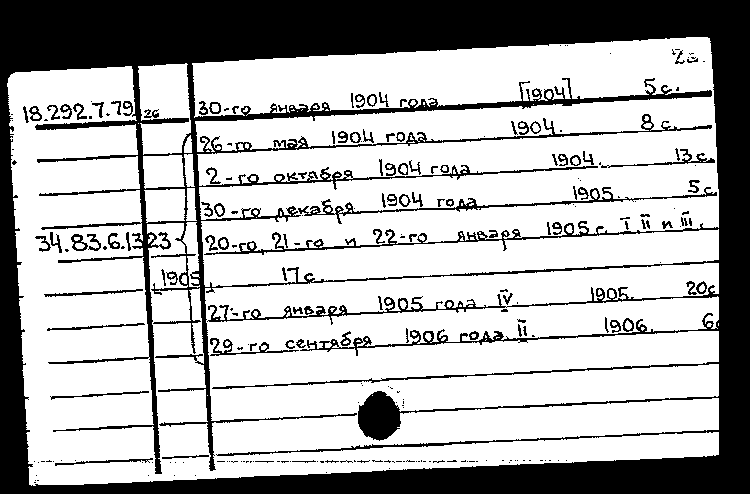 2а.
18.292.7.79 26 30-го января 1904 года [1904]. 5 с.
26-го мая 1904 года. 1904. 8 с.
2-го октября 1904 года 1904. 13 с.
30-го декабря 1904 года 1905. 5 с
34.83.6.1323 20-го, 21-го и 22-го января 1905 г. I, II и III.
[1905] 17 с.
27-го января 1905 года IV. 1905. 20 с
29-го сентября 1906 года. II. 1906. 6 с